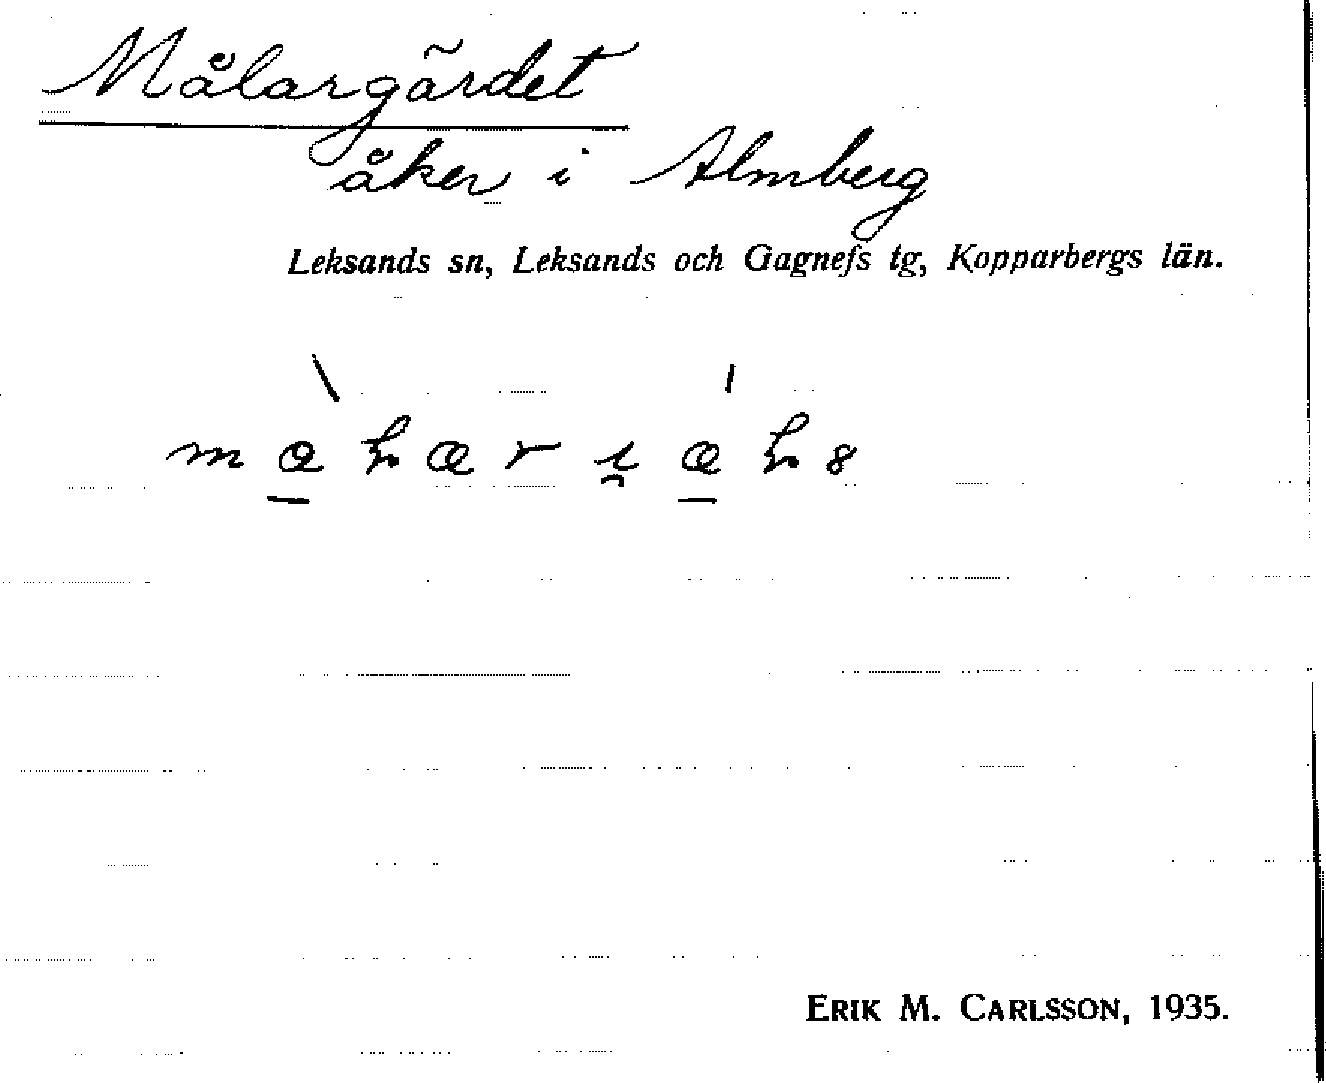 Målargärdet
åker i Almberg
Leksands sn, Leksands och Gagnefs tg, Kopparbergs län.
ERIK M. CARLSSON, 1935.